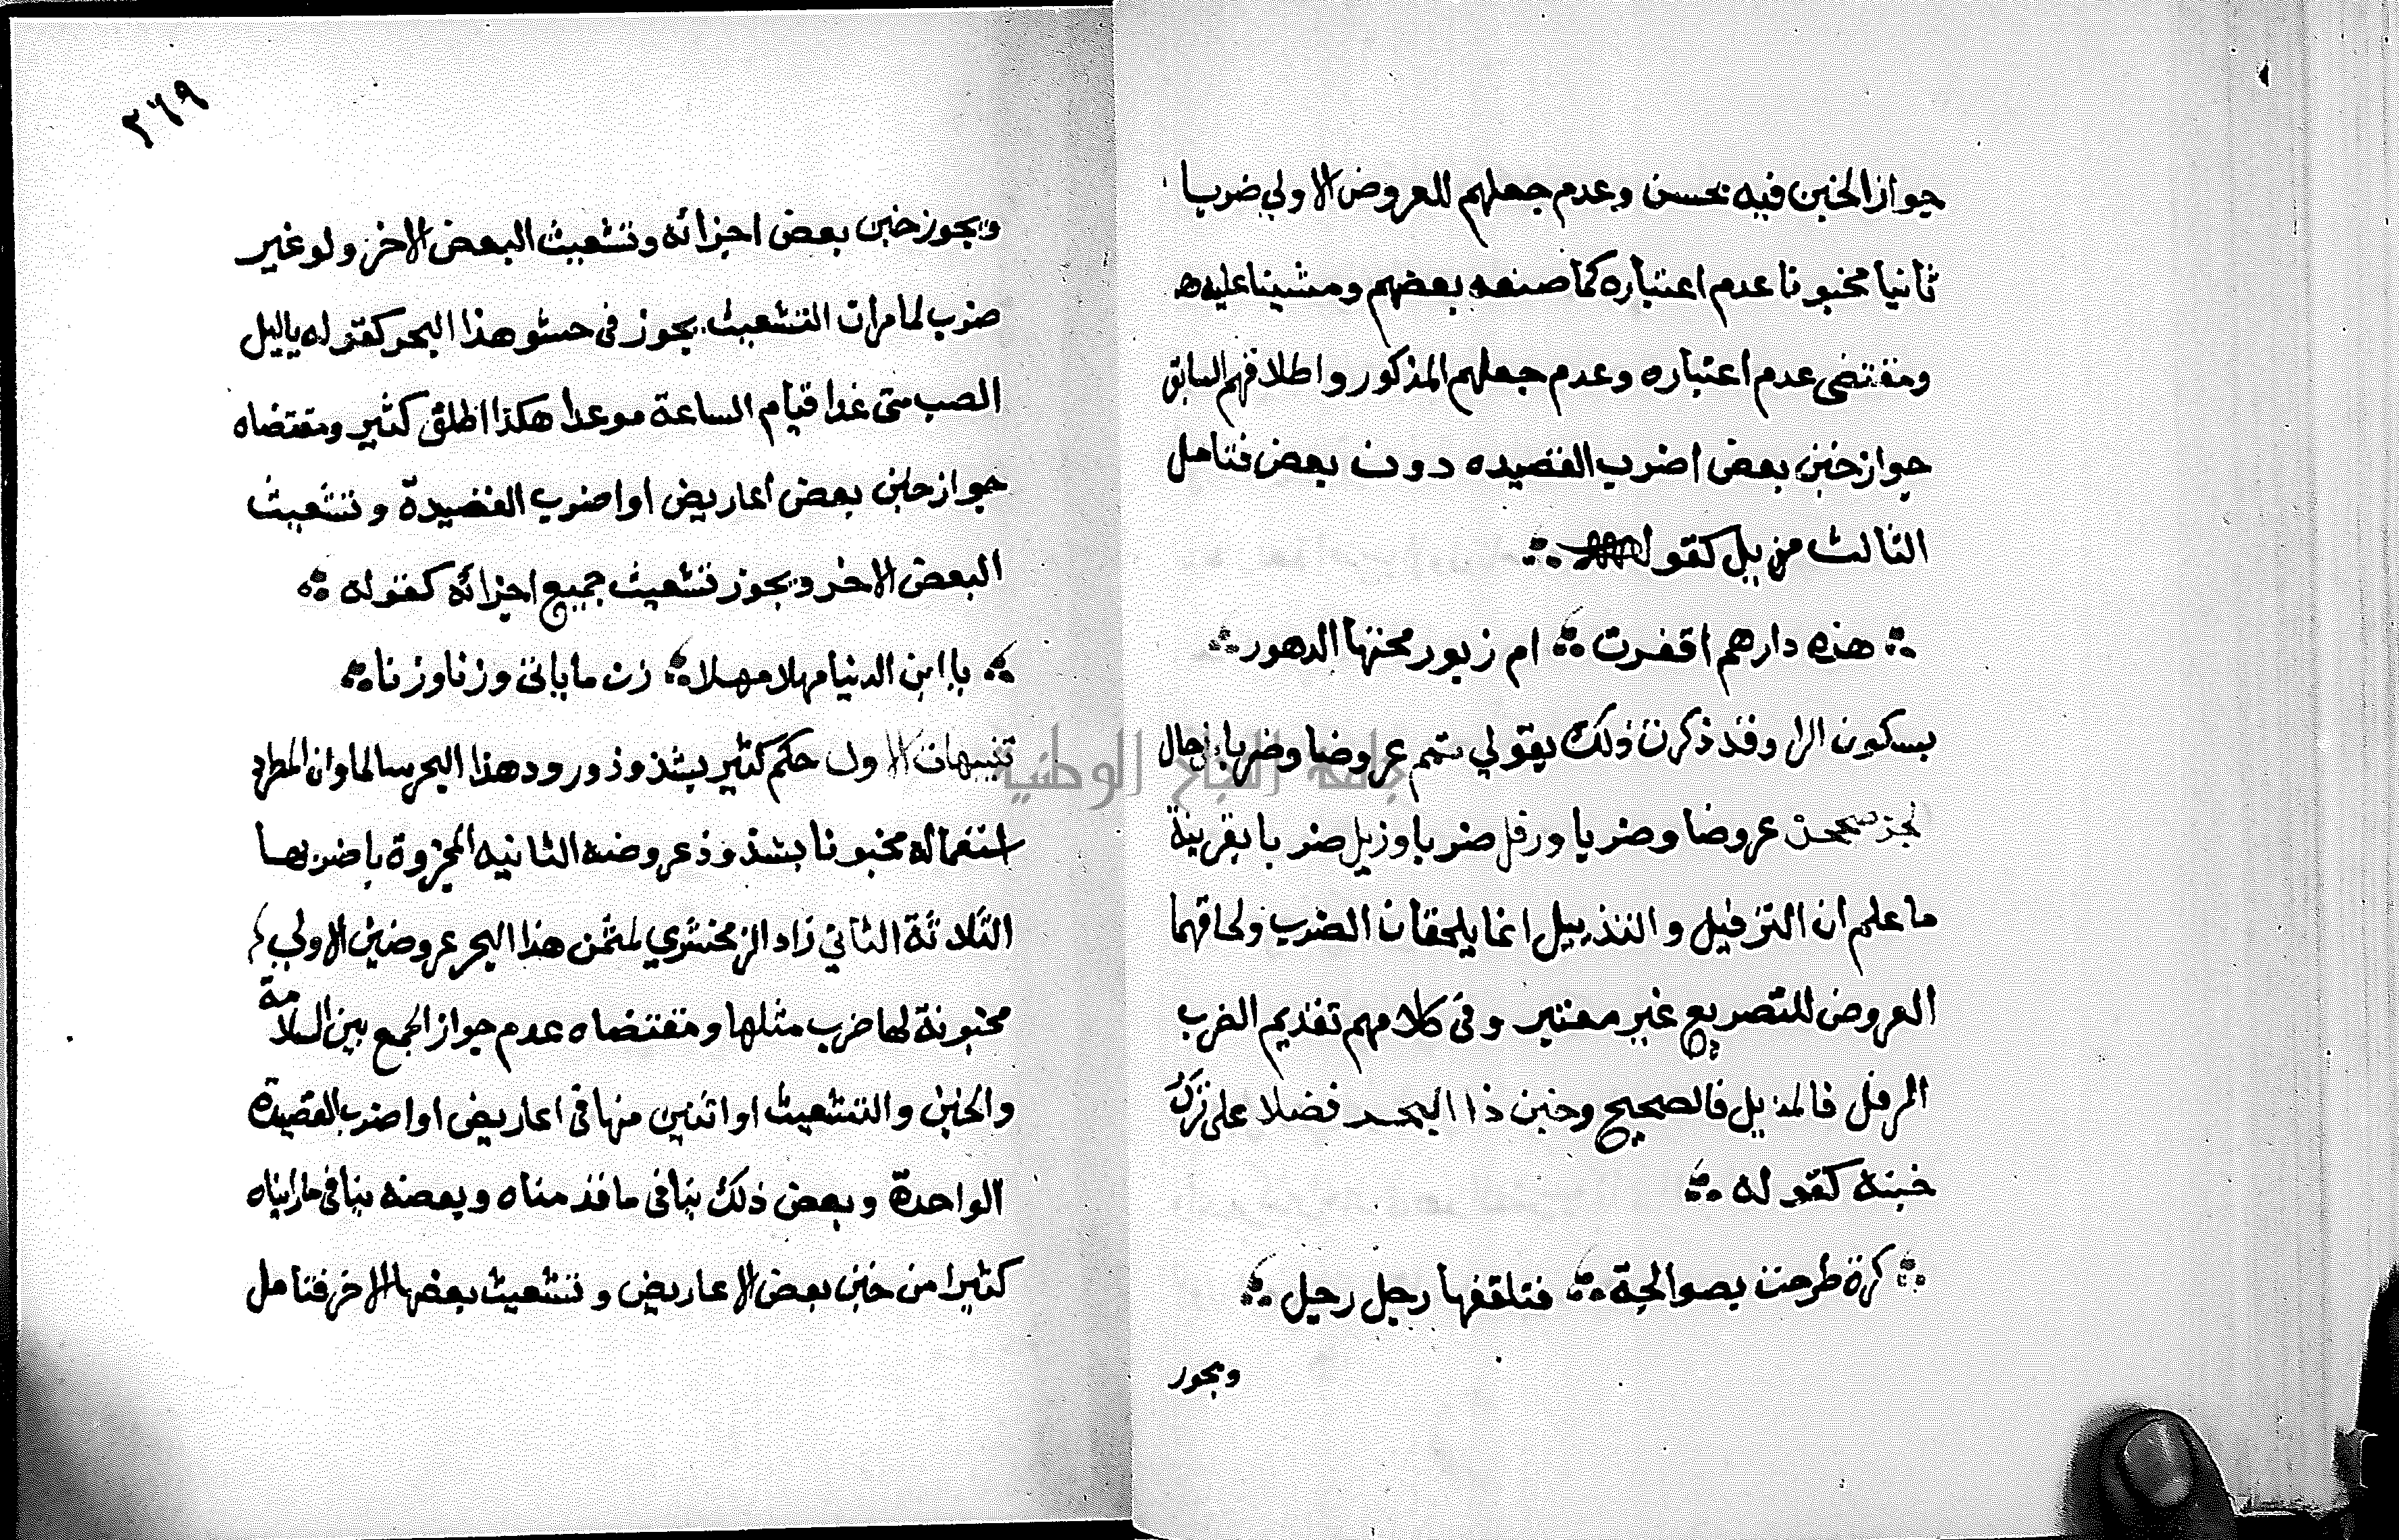 جواز الخبن فيه بحسن وعدم جعلهم للعروض الاولي ضربا
ثانيا مخبونا عدم اعتباره كما صنعه بعضهم ومشينا عليه ه
ومقتضى عدم اعتباره وعدم جعلهم المذكور واطلاقهم السابق
جواز خبن بعض اضرب القصيده دون بعض فتامل
الثالث مزيل كقوله
هذه دارهم اقفرت ام زبور محتها الدهور
بسكون الرا وقد ذكرت ذلك بقولي متمم عروضا وضربا حال
لجز صححن عروضا وضربا ورفل ضربا وزيل ضربا بقرينة
ما علم ان الترفيل والتذييل انما يلحقان الضرب ولحاقهما
العروض للتصريع غير معتبر وفي كلامهم تقديم الضرب
المرفل فالمذيل فالصحيح وخبن ذا البحر فضلا على ترك
خبنه كقوله
كرة طرحت بصوالجة فتلقفها رجل رجل
ويجوز
٢٦٩
ويجوز خبن بعض اجزائه وتشعيث البعض الاخر ولو غير
ضرب لما مر ان التشعيث يجوز في حشو هذا البحر كقوله ياليل
الصب متى غدا قيام الساعة موعدا هكذا اطلق كثير ومقتضاه
جواز خبن بعض اعاريض او اضرب القصيدة وتشعيث
البعض الاخر ويجوز تشعيث جميع اجزائه كقوله
يا ابن الدنيا مهلا مهلا زن ما ياتي وزنا وزنا
تنبيهات الاول حكم كثير بشذوذ ورود هذا البحر سالما وان المطرد
استعماله مخبونا بشذوذ عروضه الثانيه المجزوة باضربها
الثلاثة الثاني زاد الزمخشري لمثمن هذا البحر عروضين الاولي
مخبونة لها ضرب مثلها ومقتضاه عدم جواز الجمع بين السلامة
والخبن والتشعيث او اثنين منها في اعاريض او اضرب القصيدة
الواحدة وبعض ذلك ينافي ما قدمناه وبعضه ينافي ما رايناه
كثيرا من خبن بعض الاعاريض وتشعيث بعضها الاخر فتامل
جامعة النجاح الوطنية